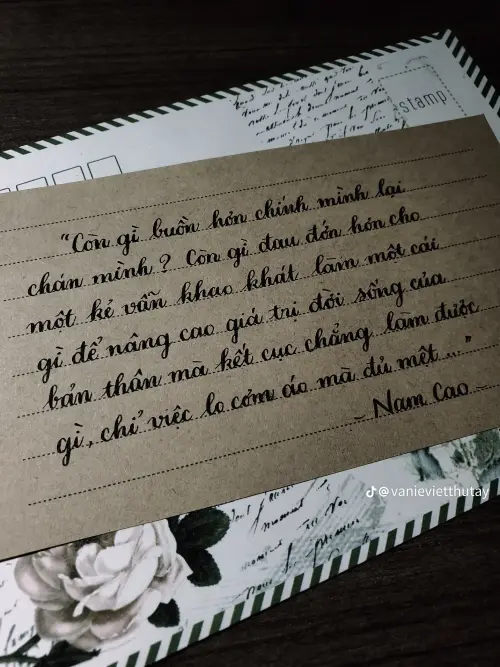 stamp
"Còn gì buồn hơn chính mình lại
chán mình? Còn gì đau đớn hơn cho
một kẻ vẫn khao khát làm một cái
gì để nâng cao giá trị đời sống của
bản thân mà kết cục chẳng làm được
gì, chỉ việc lo cơm áo mà đủ mệt ..."
- Nam Cao -
@vanievietthutay